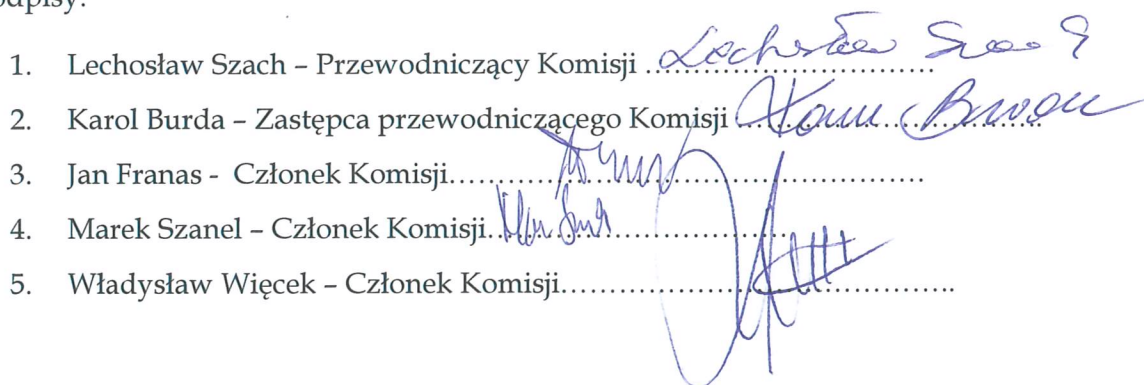 1. Lechosław Szach – Przewodniczący Komisji ................................ Lechosław Szach
2. Karol Burda – Zastępca przewodniczącego Komisji ................................ Karol Burda
3. Jan Franas - Członek Komisji................................................
4. Marek Szanel – Członek Komisji................................
5. Władysław Więcek – Członek Komisji................................................